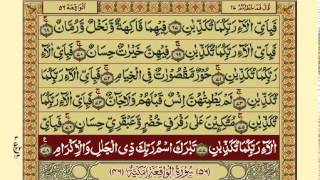 قال فما خطبكم ٢٧ الواقعة ٥٦
فَبِاَيِّ اٰلَآءِ رَبِّكُمَا تُكَذِّبٰنِ فِيْهِمَا فَاكِهَةٌ وَّنَخْلٌ وَّرُمَّانٌ
فَبِاَيِّ اٰلَآءِ رَبِّكُمَا تُكَذِّبٰنِ فِيْهِنَّ خَيْرٰتٌ حِسَانٌ
فَبِاَيِّ اٰلَآءِ رَبِّكُمَا تُكَذِّبٰنِ حُوْرٌ مَّقْصُوْرٰتٌ فِی الْخِيَامِ
فَبِاَيِّ اٰلَآءِ رَبِّكُمَا تُكَذِّبٰنِ لَمْ يَطْمِثْهُنَّ اِنْسٌ قَبْلَهُمْ وَلَا جَآنٌّ
فَبِاَيِّ اٰلَآءِ رَبِّكُمَا تُكَذِّبٰنِ مُتَّكِـِٕيْنَ عَلٰى رَفْرَفٍ خُضْرٍ وَّعَبْقَرِيٍّ حِسَانٍ فَبِاَيِّ
اٰلَآءِ رَبِّكُمَا تُكَذِّبٰنِ تَبٰرَكَ اسْمُ رَبِّكَ ذِی الْجَلٰلِ وَالْاِكْرَامِ
(٥٦) سُوْرَةُ الْوَاقِعَةِ مَكِّيَّةٌ (٤٦)